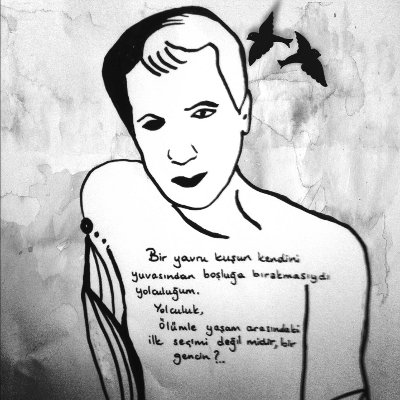 Bir yavru kuşun kendini
yuvasından boşluğa bırakmasıydı
yolculuğum.
Yolculuk,
Ölümle yaşam arasındaki
ilk seçimi değil midir, bir
gencin?..